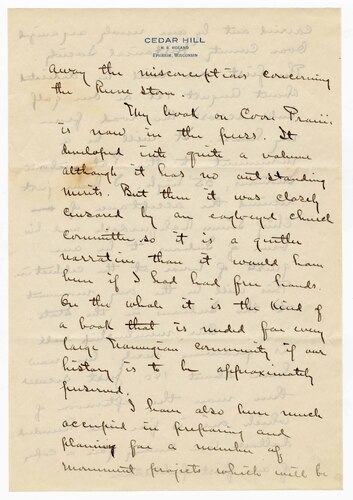 CEDAR HILL
H. R. HOLAND
EPHRAIM, WISCONSIN
away the misconceptions concerning
the Rune stone.
My book on Coon Prairie
is now in the press. It
developed into quite a volume
although it has no outstanding
merits. But then it was closely
censored by an eagle-eyed church
committee so it is a quieter
narrative than it would have
been if I had had free hands.
On the whole it is the kind of
a book that is needed for every
large Norwegian community if our
history is to be approximately
preserved.
I have also been much
occupied in preparing and
planning for a number of
monument projects which will be